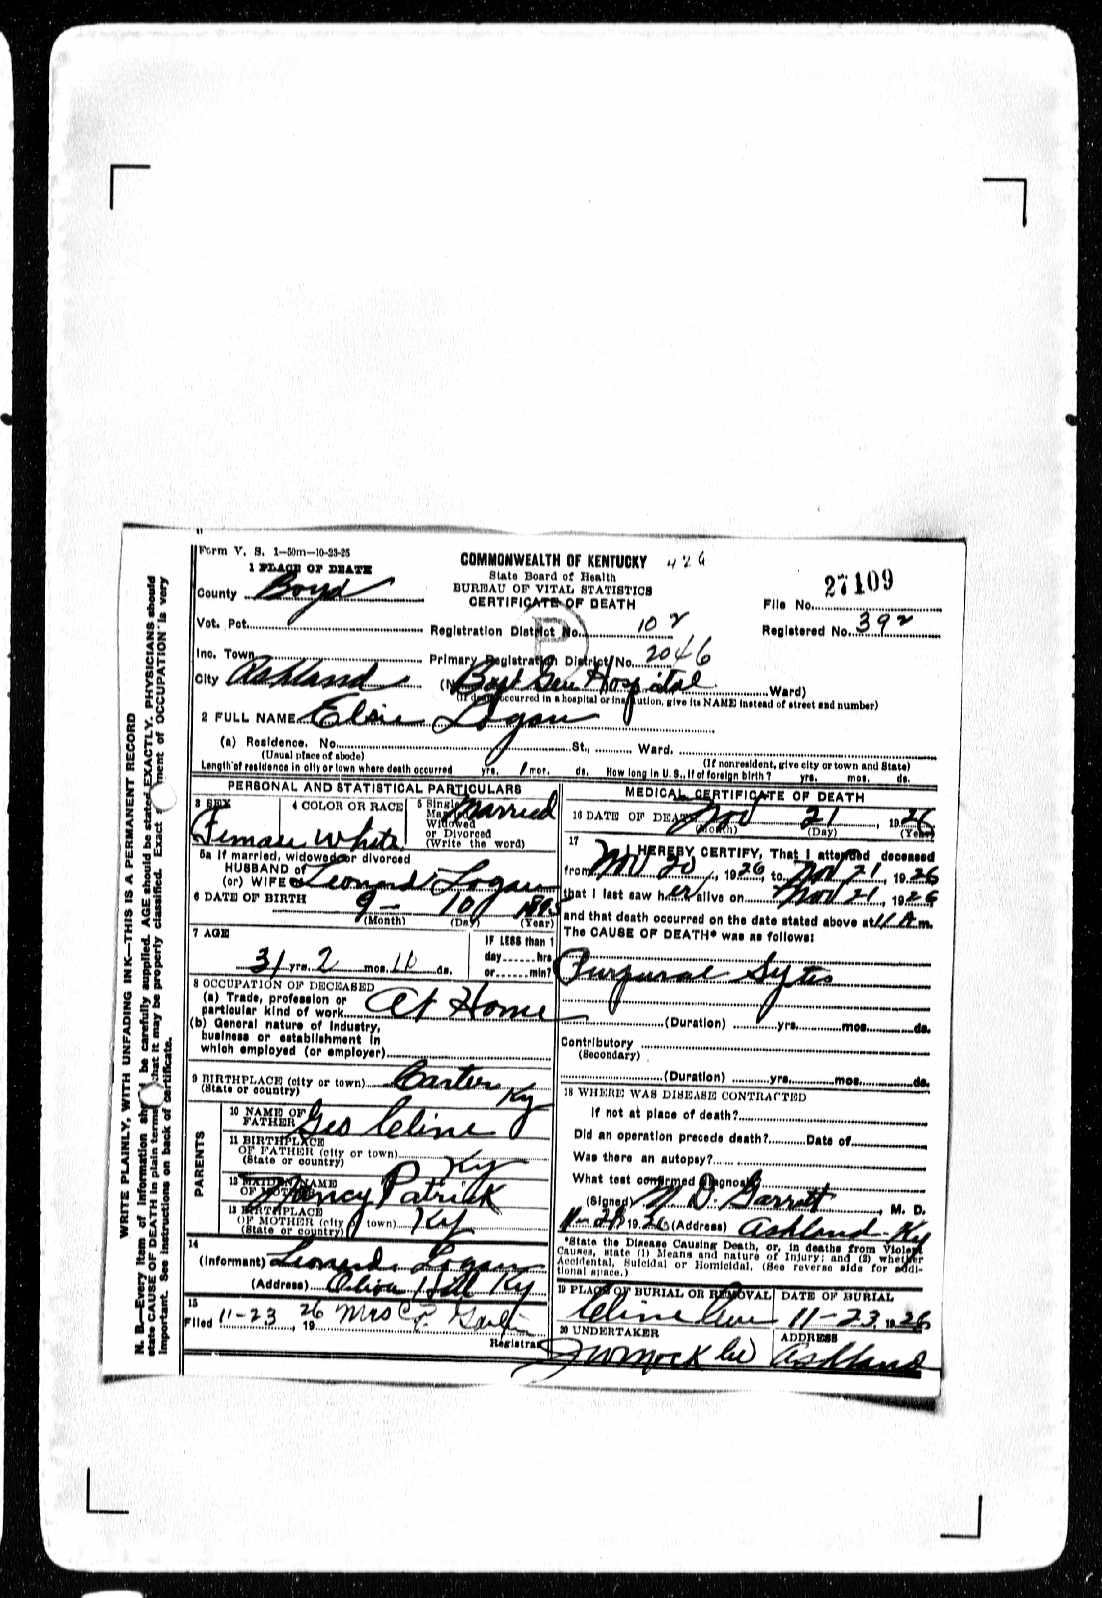 Form V. S. 1—50m—10-23-25
COMMONWEALTH OF KENTUCKY 426
State Board of Health
BUREAU OF VITAL STATISTICS
CERTIFICATE OF DEATH
27109
File No.
Registered No. 392
1 PLACE OF DEATH
County Boyd
Vot. Pct.
Registration District No. 102
Inc. Town
Primary Registration District No. 2046
City Ashland
Gen Hospital Ward)
(If death occurred in a hospital or institution, give its NAME instead of street and number)
2 FULL NAME Elsie Logan
(a) Residence. No. St., Ward.
(Usual place of abode) (If nonresident, give city or town and State)
Length of residence in city or town where death occurred yrs. 1 mos. ds. How long in U. S., if of foreign birth? yrs. mos. ds.
PERSONAL AND STATISTICAL PARTICULARS
3 SEX
Female
4 COLOR OR RACE
White
5 Single
Married
Widowed
or Divorced
(Write the word)
Married
5a If married, widowed or divorced
HUSBAND of
(or) WIFE of Leonard Logan
6 DATE OF BIRTH 9— 10 1895
(Month) (Day) (Year)
7 AGE
31 yrs. 2 mos. 11 ds.
IF LESS than 1
day hrs
or min?
8 OCCUPATION OF DECEASED
(a) Trade, profession or
particular kind of work At Home
(b) General nature of Industry,
business or establishment in
which employed (or employer)
9 BIRTHPLACE (city or town) Carter
(State or country) Ky
PARENTS
10 NAME OF
FATHER Geo Cline
11 BIRTHPLACE
OF FATHER (city or town)
(State or country) Ky
12 MAIDEN NAME
OF MOTHER Nancy Patrick
13 BIRTHPLACE
OF MOTHER (city or town) Ky
(State or country)
14
(Informant) Leonard Logan
(Address) Olive Hill Ky
15
Filed 11-23, 1926 Mrs C.
Registrar
MEDICAL CERTIFICATE OF DEATH
16 DATE OF DEATH Nov 21, 1926
(Month) (Day) (Year)
17
I HEREBY CERTIFY, That I attended deceased
from Nov 20, 1926, to Nov 21, 1926
that I last saw her alive on Nov 21, 1926
and that death occurred on the date stated above at 11 A m.
The CAUSE OF DEATH* was as follows:
(Duration) yrs. mos. ds.
Contributory
(Secondary)
(Duration) yrs. mos. ds.
18 WHERE WAS DISEASE CONTRACTED
If not at place of death?
Did an operation precede death? Date of
Was there an autopsy?
What test confirmed diagnosis
(Signed) N. D. Garrett, M. D.
1926 (Address) Ashland Ky
*State the Disease Causing Death, or, in deaths from Violent
Causes, state (1) Means and nature of Injury; and (2) whether
Accidental, Suicidal or Homicidal. (See reverse side for addi-
tional space.)
19 PLACE OF BURIAL OR REMOVAL
Cline Cem
DATE OF BURIAL
11-23, 1926
20 UNDERTAKER
ADDRESS
Ashland
N. B.—Every item of information should be carefully supplied. AGE should be stated EXACTLY. PHYSICIANS should
state CAUSE OF DEATH in plain terms that it may be properly classified. Exact statement of OCCUPATION is very
important. See instructions on back of certificate.
WRITE PLAINLY, WITH UNFADING INK—THIS IS A PERMANENT RECORD